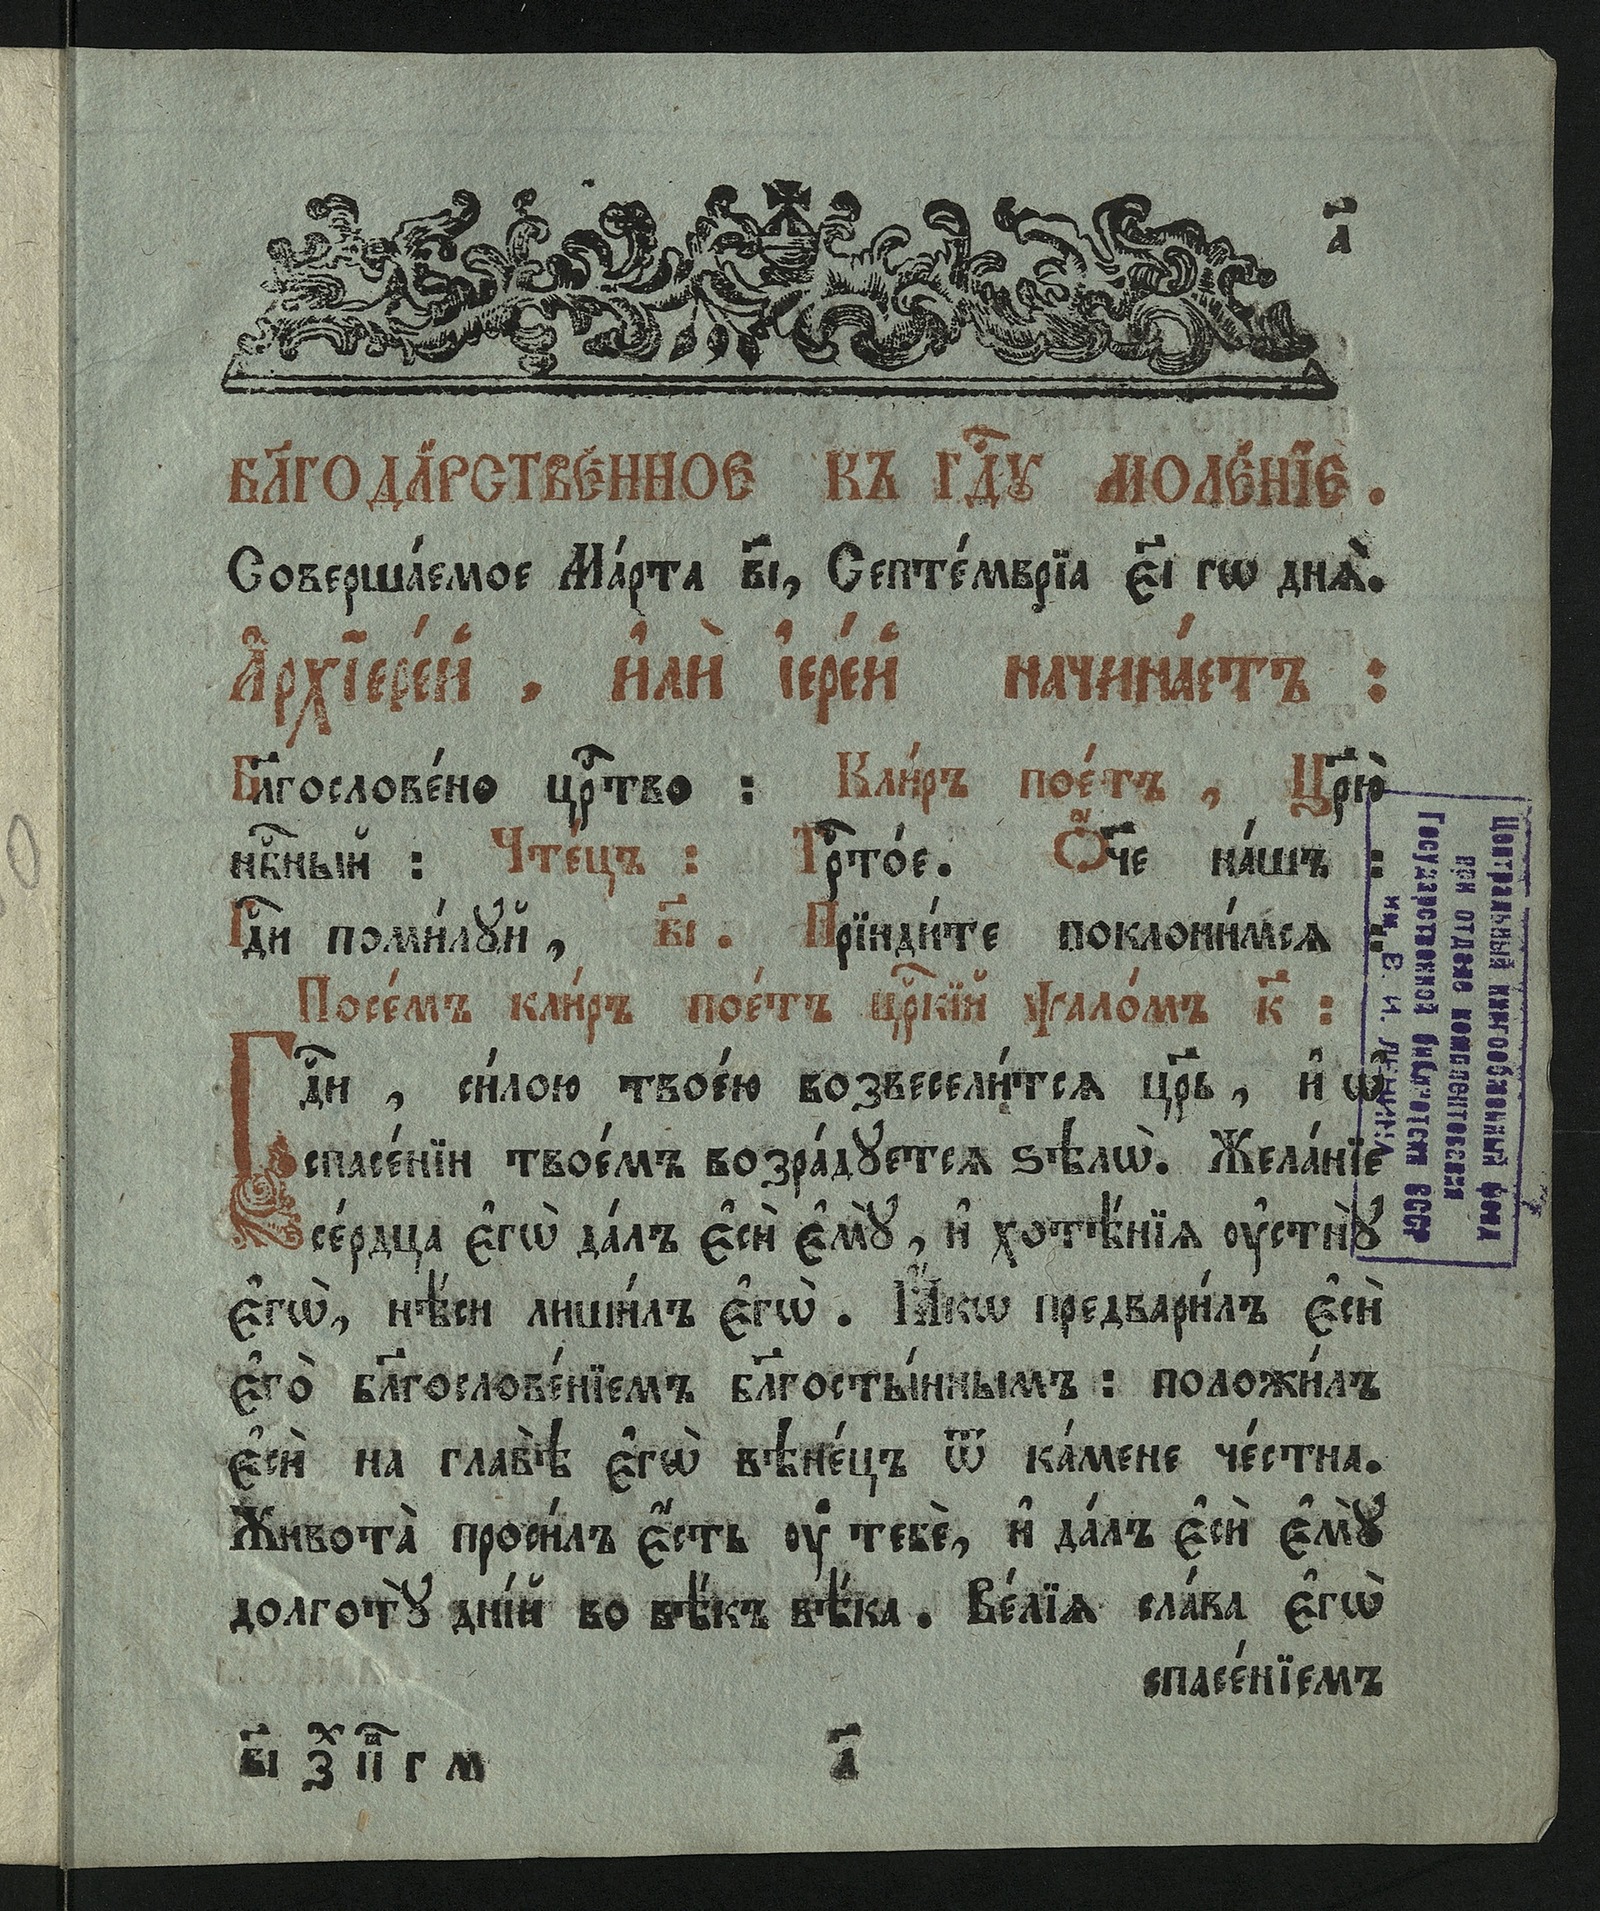 а҃
БЛ҃ГОДА́РСТВЕННОЕ КЪ ГДⷭ҇Ꙋ МОЛЕ́НЇЕ.
Соверша́емое Ма́рта в҃і, Септе́мврїа є҃і гѡ днѧ̀.
А҆рхїере́й, и҆лѝ і҆ере́й начина́етъ :
Бл҃гослове́но црⷭ҇тво : Кли́ръ пое́тъ, Цр҃ю̀
нбⷭ҇ный : Чте́цъ : Трⷭ҇то́е. Ѻ҆́ч҃е на́шъ :
Гдⷭ҇и поми́лꙋй, в҃і. Прїиди́те поклони́мсѧ :
Посе́мъ кли́ръ пое́тъ цр҃кїй ѱало́мъ к҃ :
Гдⷭ҇и, си́лою твое́ю возвесели́тсѧ цр҃ь, и҆ ѡ҆
спасе́нїи твое́мъ возра́дꙋетсѧ ѕѣлѡ̀. Жела́нїе
се́рдца є҆гѡ̀ да́лъ є҆сѝ є҆мꙋ̀, и҆ хотѣ́нїѧ оу҆стнꙋ̀
є҆гѡ̀, нѣ́си лиши́лъ є҆гѡ̀. Ꙗ҆́кѡ предвари́лъ є҆сѝ
є҆го̀ бл҃гослове́нїемъ бл҃госты́ннымъ : положи́лъ
є҆сѝ на главѣ̀ є҆гѡ̀ вѣне́цъ ѿ ка́мене че́стна.
Живота̀ проси́лъ є҆́сть оу҆ тебє̀, и҆ да́лъ є҆сѝ є҆мꙋ̀
долготꙋ̀ дні́й во вѣ́къ вѣ́ка. Ве́лїѧ сла́ва є҆гѡ̀
спасе́нїемъ
а҃
Центральный книгообменный фонд
при отделе комплектования
Государственной библиотеки СССР
им. В. И. ЛЕНИНА